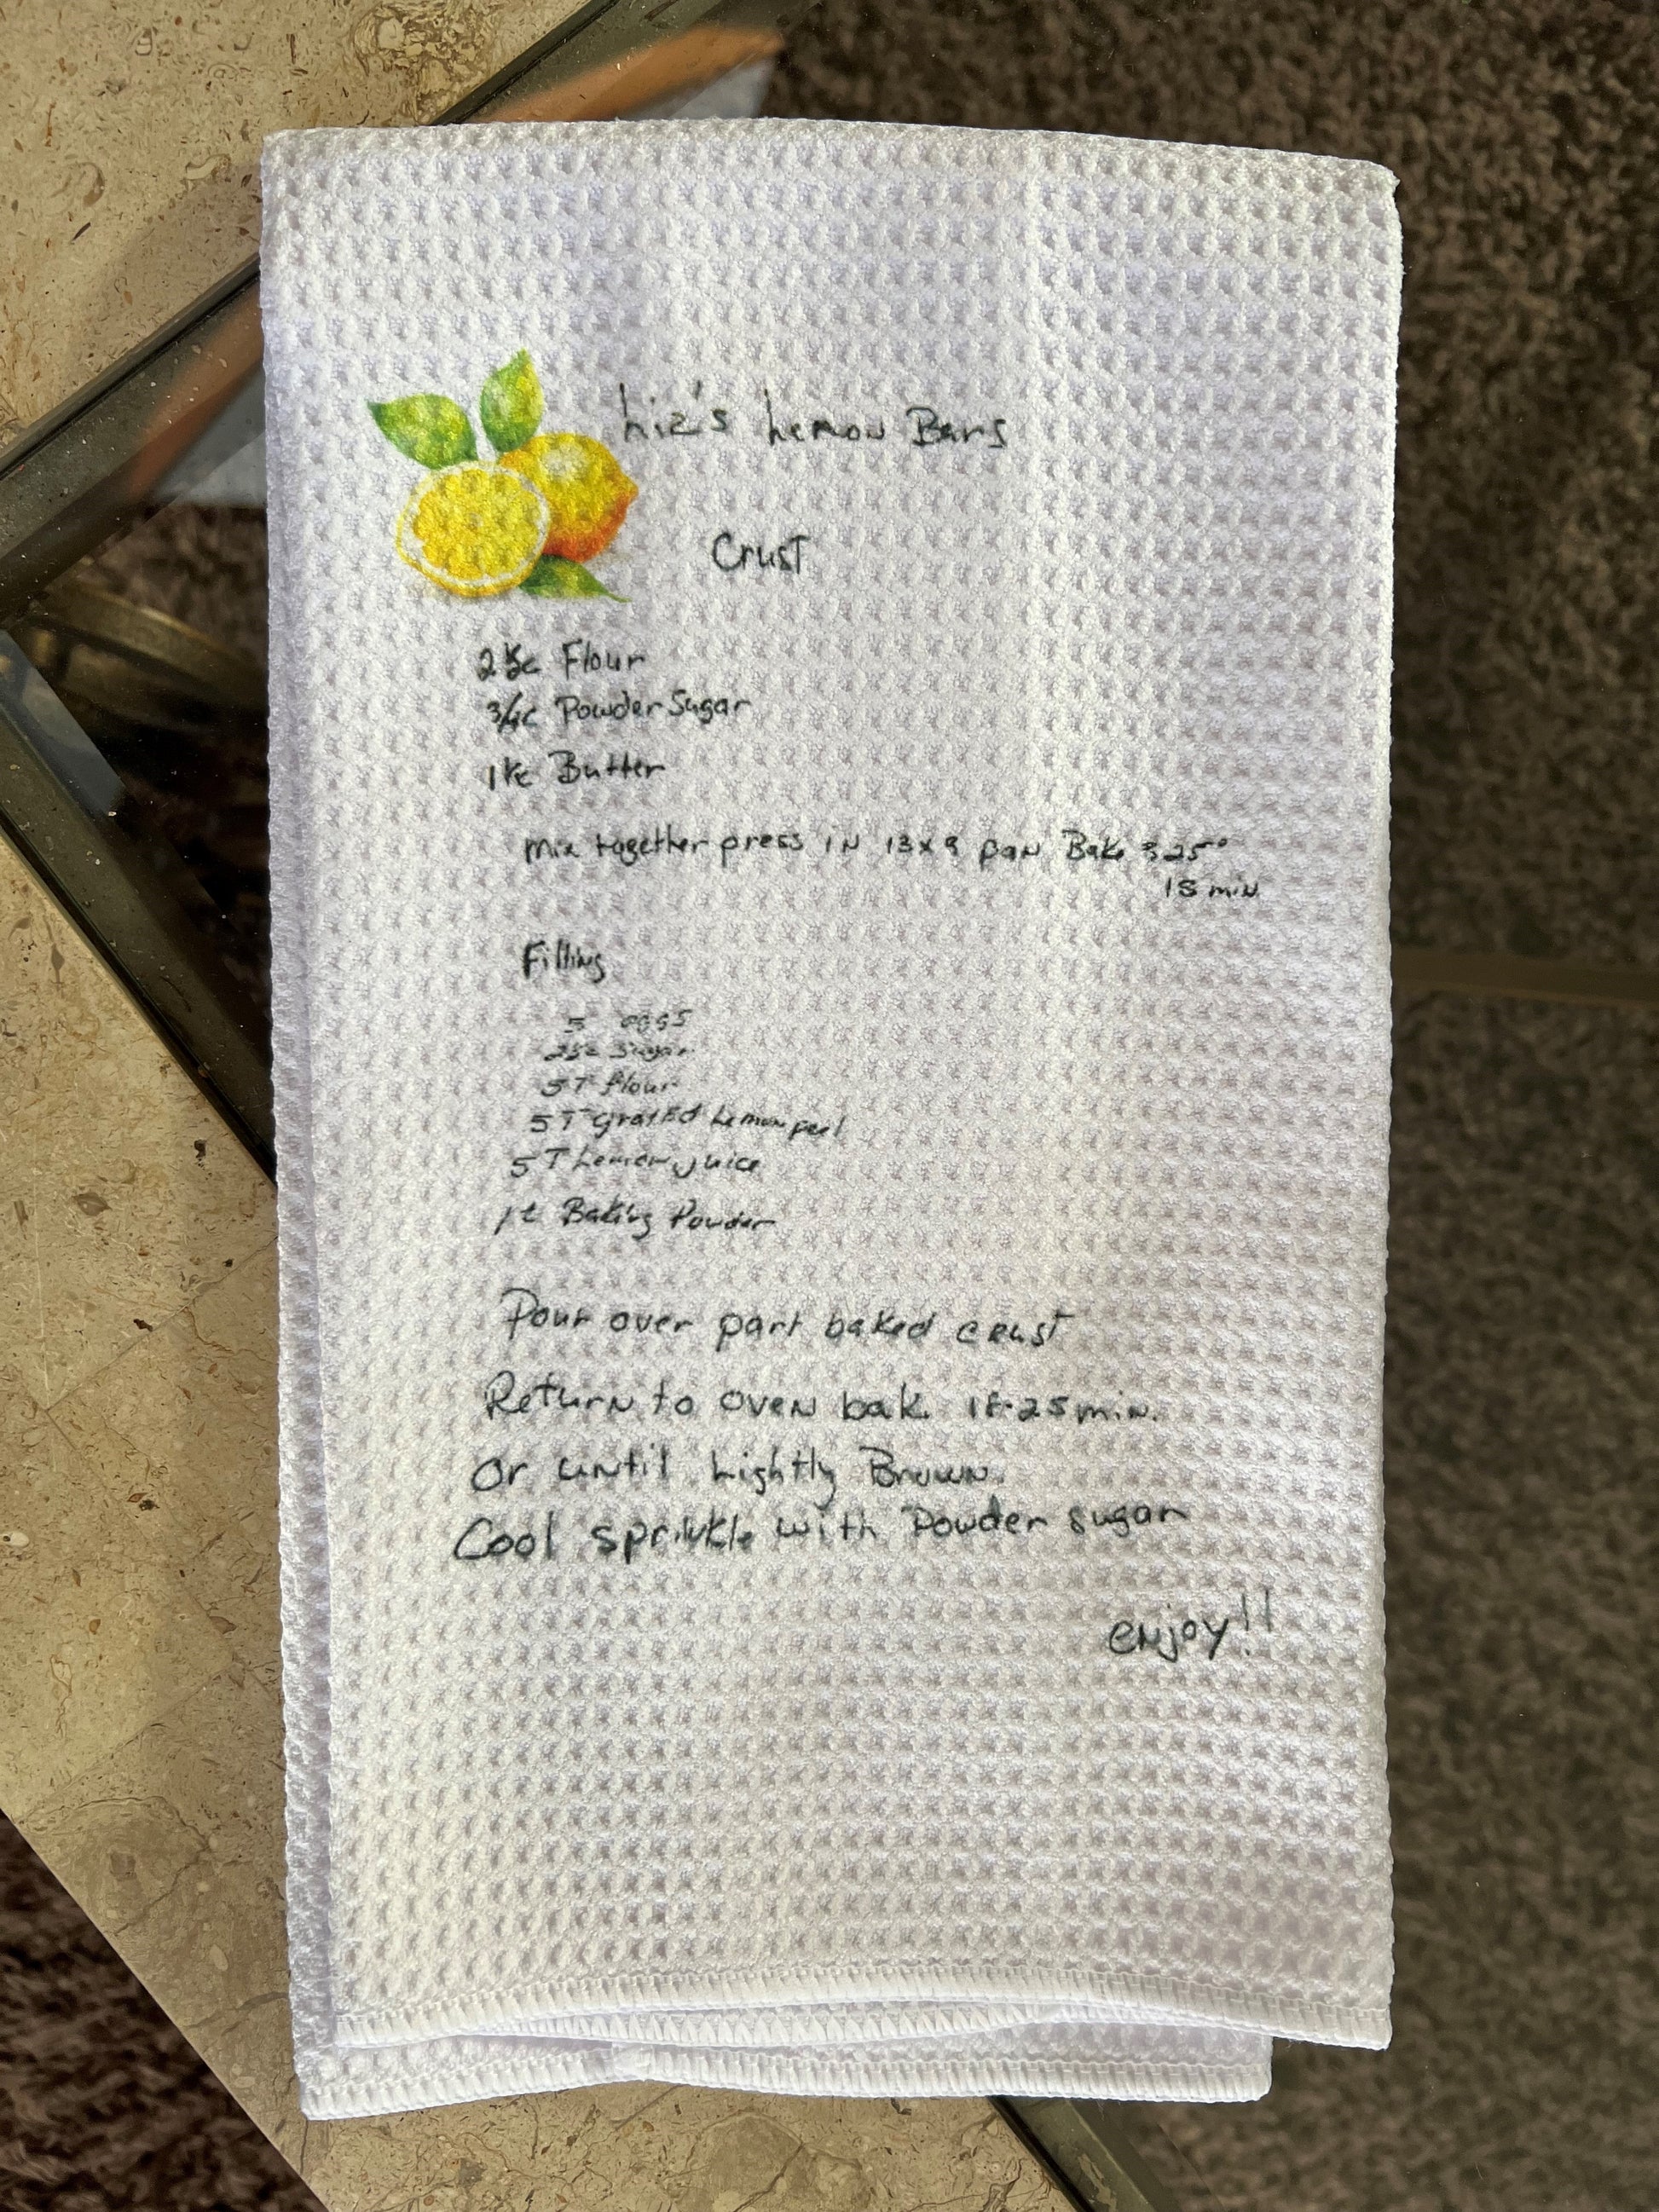 Liz's Lemon Bars
Crust
2 ½c Flour
3/4c Powder Sugar
1 c Butter
Mix together press in 13x9 pan Bake 325°
15 min
Filling
5 eggs
2½c Sugar
5T flour
5T grated Lemon peel
5T Lemon juice
1t Baking Powder
Pour over part baked crust
Return to oven bak 18-25 min.
Or until Lightly Brown.
Cool sprinkle with Powder sugar
enjoy!!